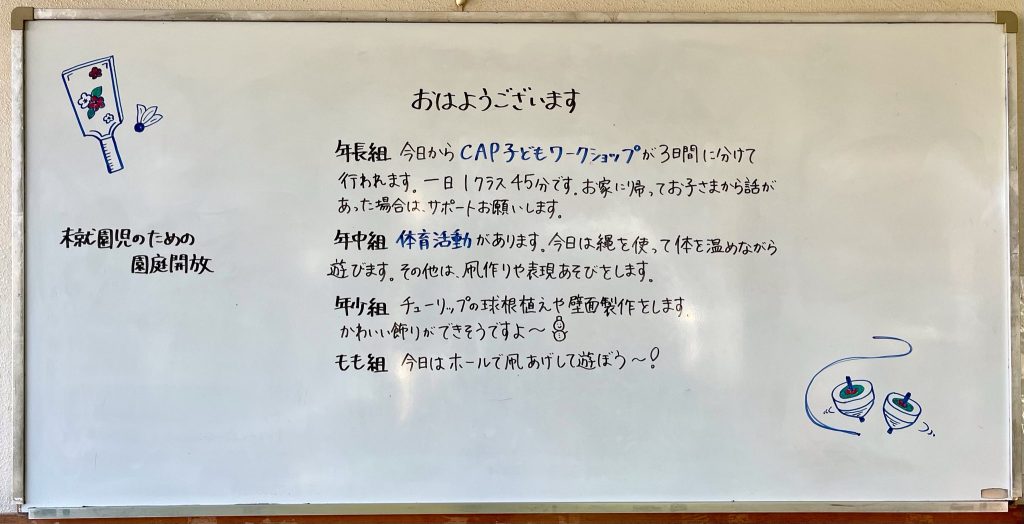 おはようございます
年長組 今日からCAP子どもワークショップが3日間に分けて
行われます。一日1クラス45分です。お家に帰ってお子さまから話が
あった場合は、サポートお願いします。
未就園児のための
園庭開放
年中組 体育活動があります。今日は縄を使って体を温めながら
遊びます。その他は、凧作りや表現あそびをします。
年少組 チューリップの球根植えや壁面製作をします。
かわいい飾りができそうですよ〜
もも組 今日はホールで凧あげして遊ぼう〜!